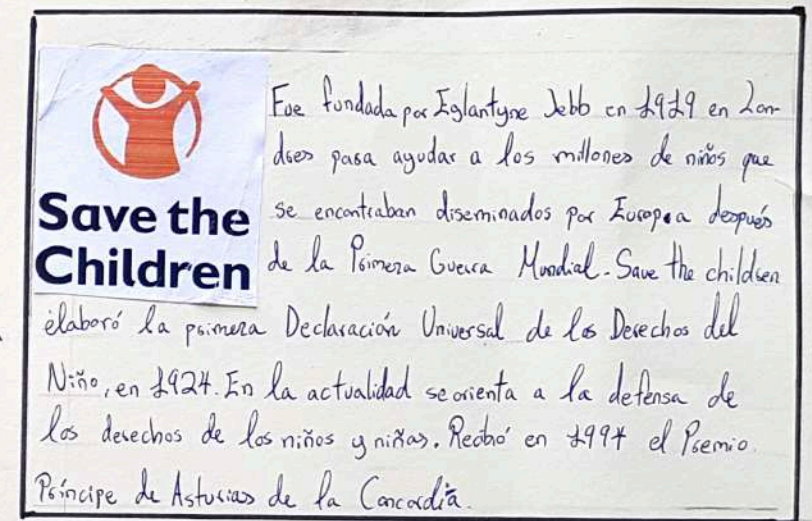 Save the
Children
Fue fundada por Eglantyne Jebb en 1919 en Lon-
dres para ayudar a los millones de niños que
se encontraban diseminados por Europa después
de la Primera Guerra Mundial. Save the children
elaboró la primera Declaración Universal de los Derechos del
Niño, en 1924. En la actualidad se orienta a la defensa de
los derechos de los niños y niñas. Recibió en 1997 el Premio
Príncipe de Asturias de la Concordia.